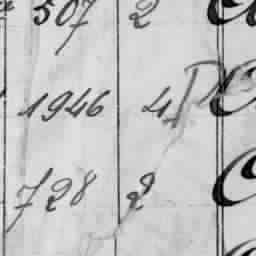 507 2
1946 4
728 2